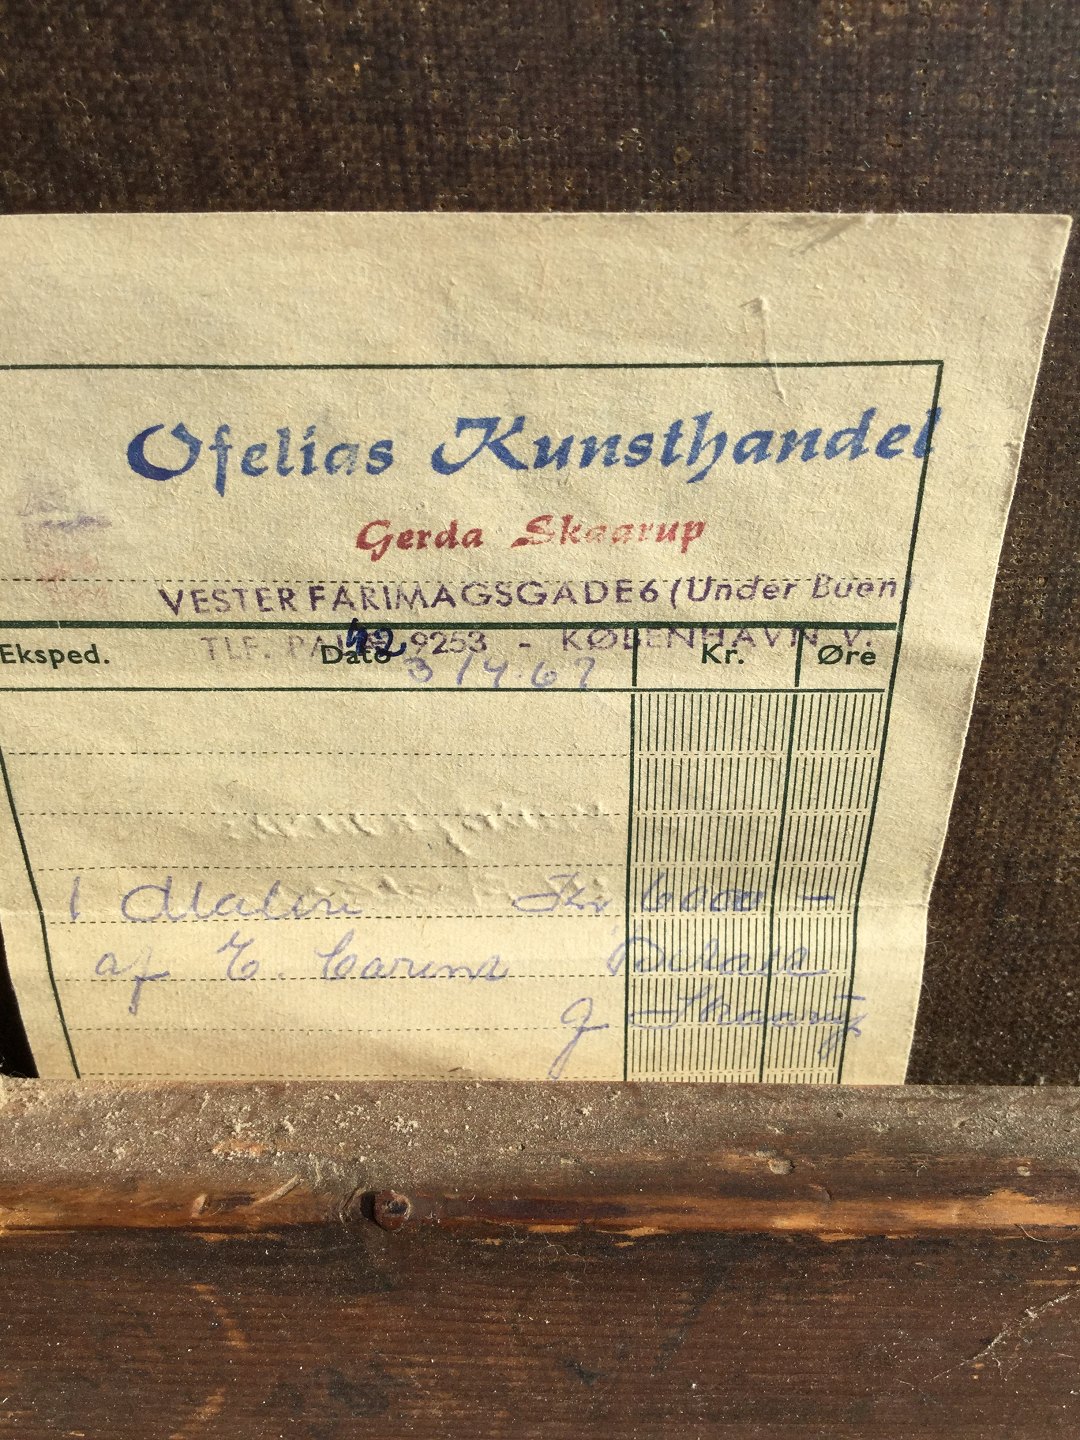 Ofelias Kunsthandel
Gerda Skaarup
VESTER FARIMAGSGADE 6 (Under Buen
TLF. PA 9253 - KØBENHAVN V.
Eksped. Dato Kr. Øre
3/4.67
1 Maleri Kr 6000 -
af E. Carins
G Skaarup